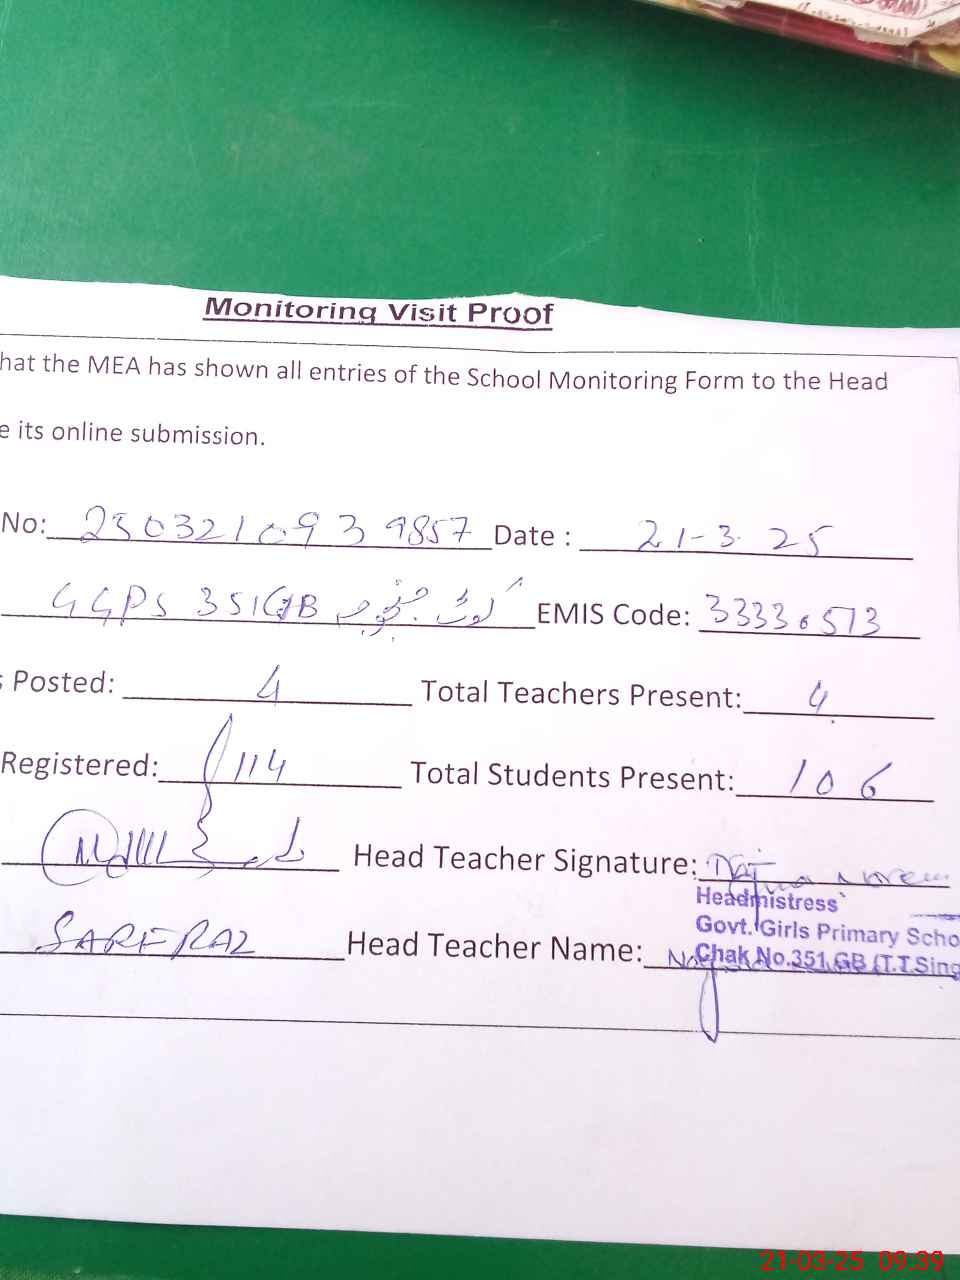 Monitoring Visit Proof
hat the MEA has shown all entries of the School Monitoring Form to the Head
e its online submission.
No: 2503210939857 Date : 21-3-25
GGPS 351GB EMIS Code: 33330573
s Posted: 4 Total Teachers Present: 4
Registered: 114 Total Students Present: 106
Head Teacher Signature:
Headmistress
Govt. Girls Primary Scho
SARFRAZ Head Teacher Name:
Chak No.351,GB (T.T.Sing
21-03-25 09:39